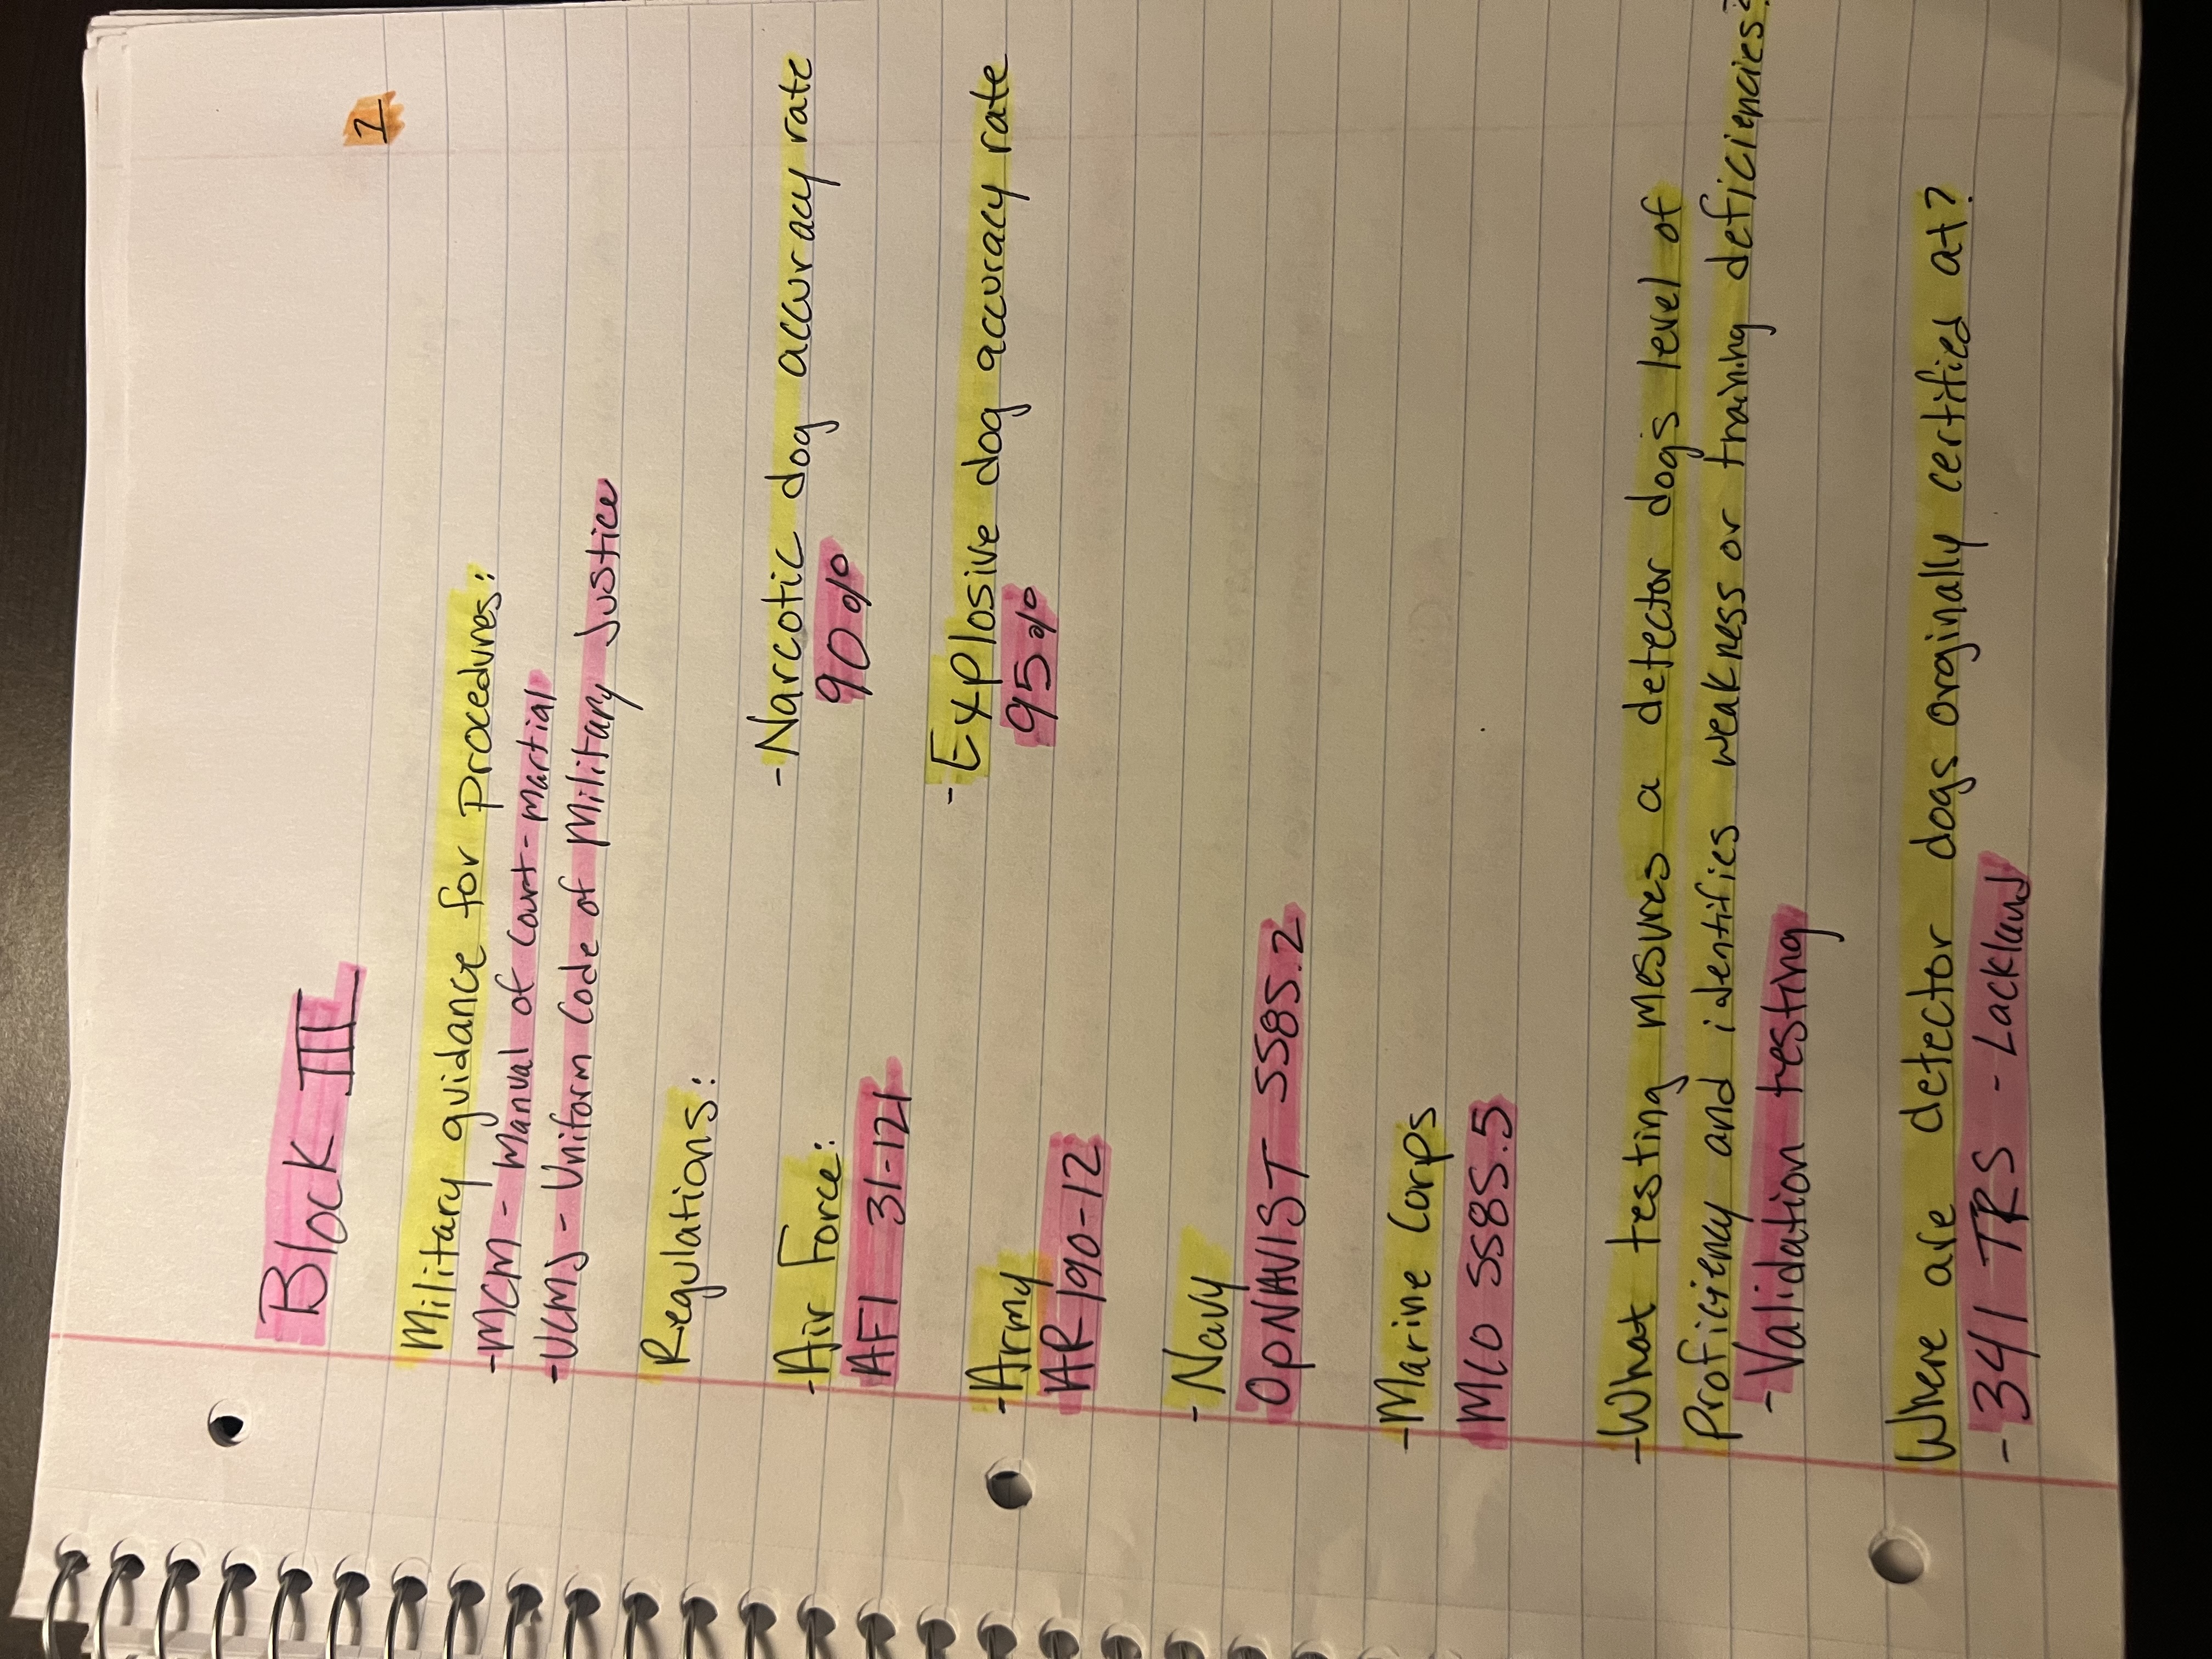 Block III
1
Military guidance for procedures:
-MCM - Manual of Court-Martial
-UCMJ - Uniform Code of Military Justice
Regulations:
-Air Force:
AFI 31-121
-Narcotic dog accuracy rate
90%
-Army
AR 190-12
-Explosive dog accuracy rate
95%
-Navy
OpNAVIST 5585.2
-Marine Corps
MCO 5585.5
-What testing mesures a detector dog's level of
proficiency and identifies weakness or training deficiencies?
-Validation testing
Where are detector dogs orginally certified at?
-341 TRS - Lackland